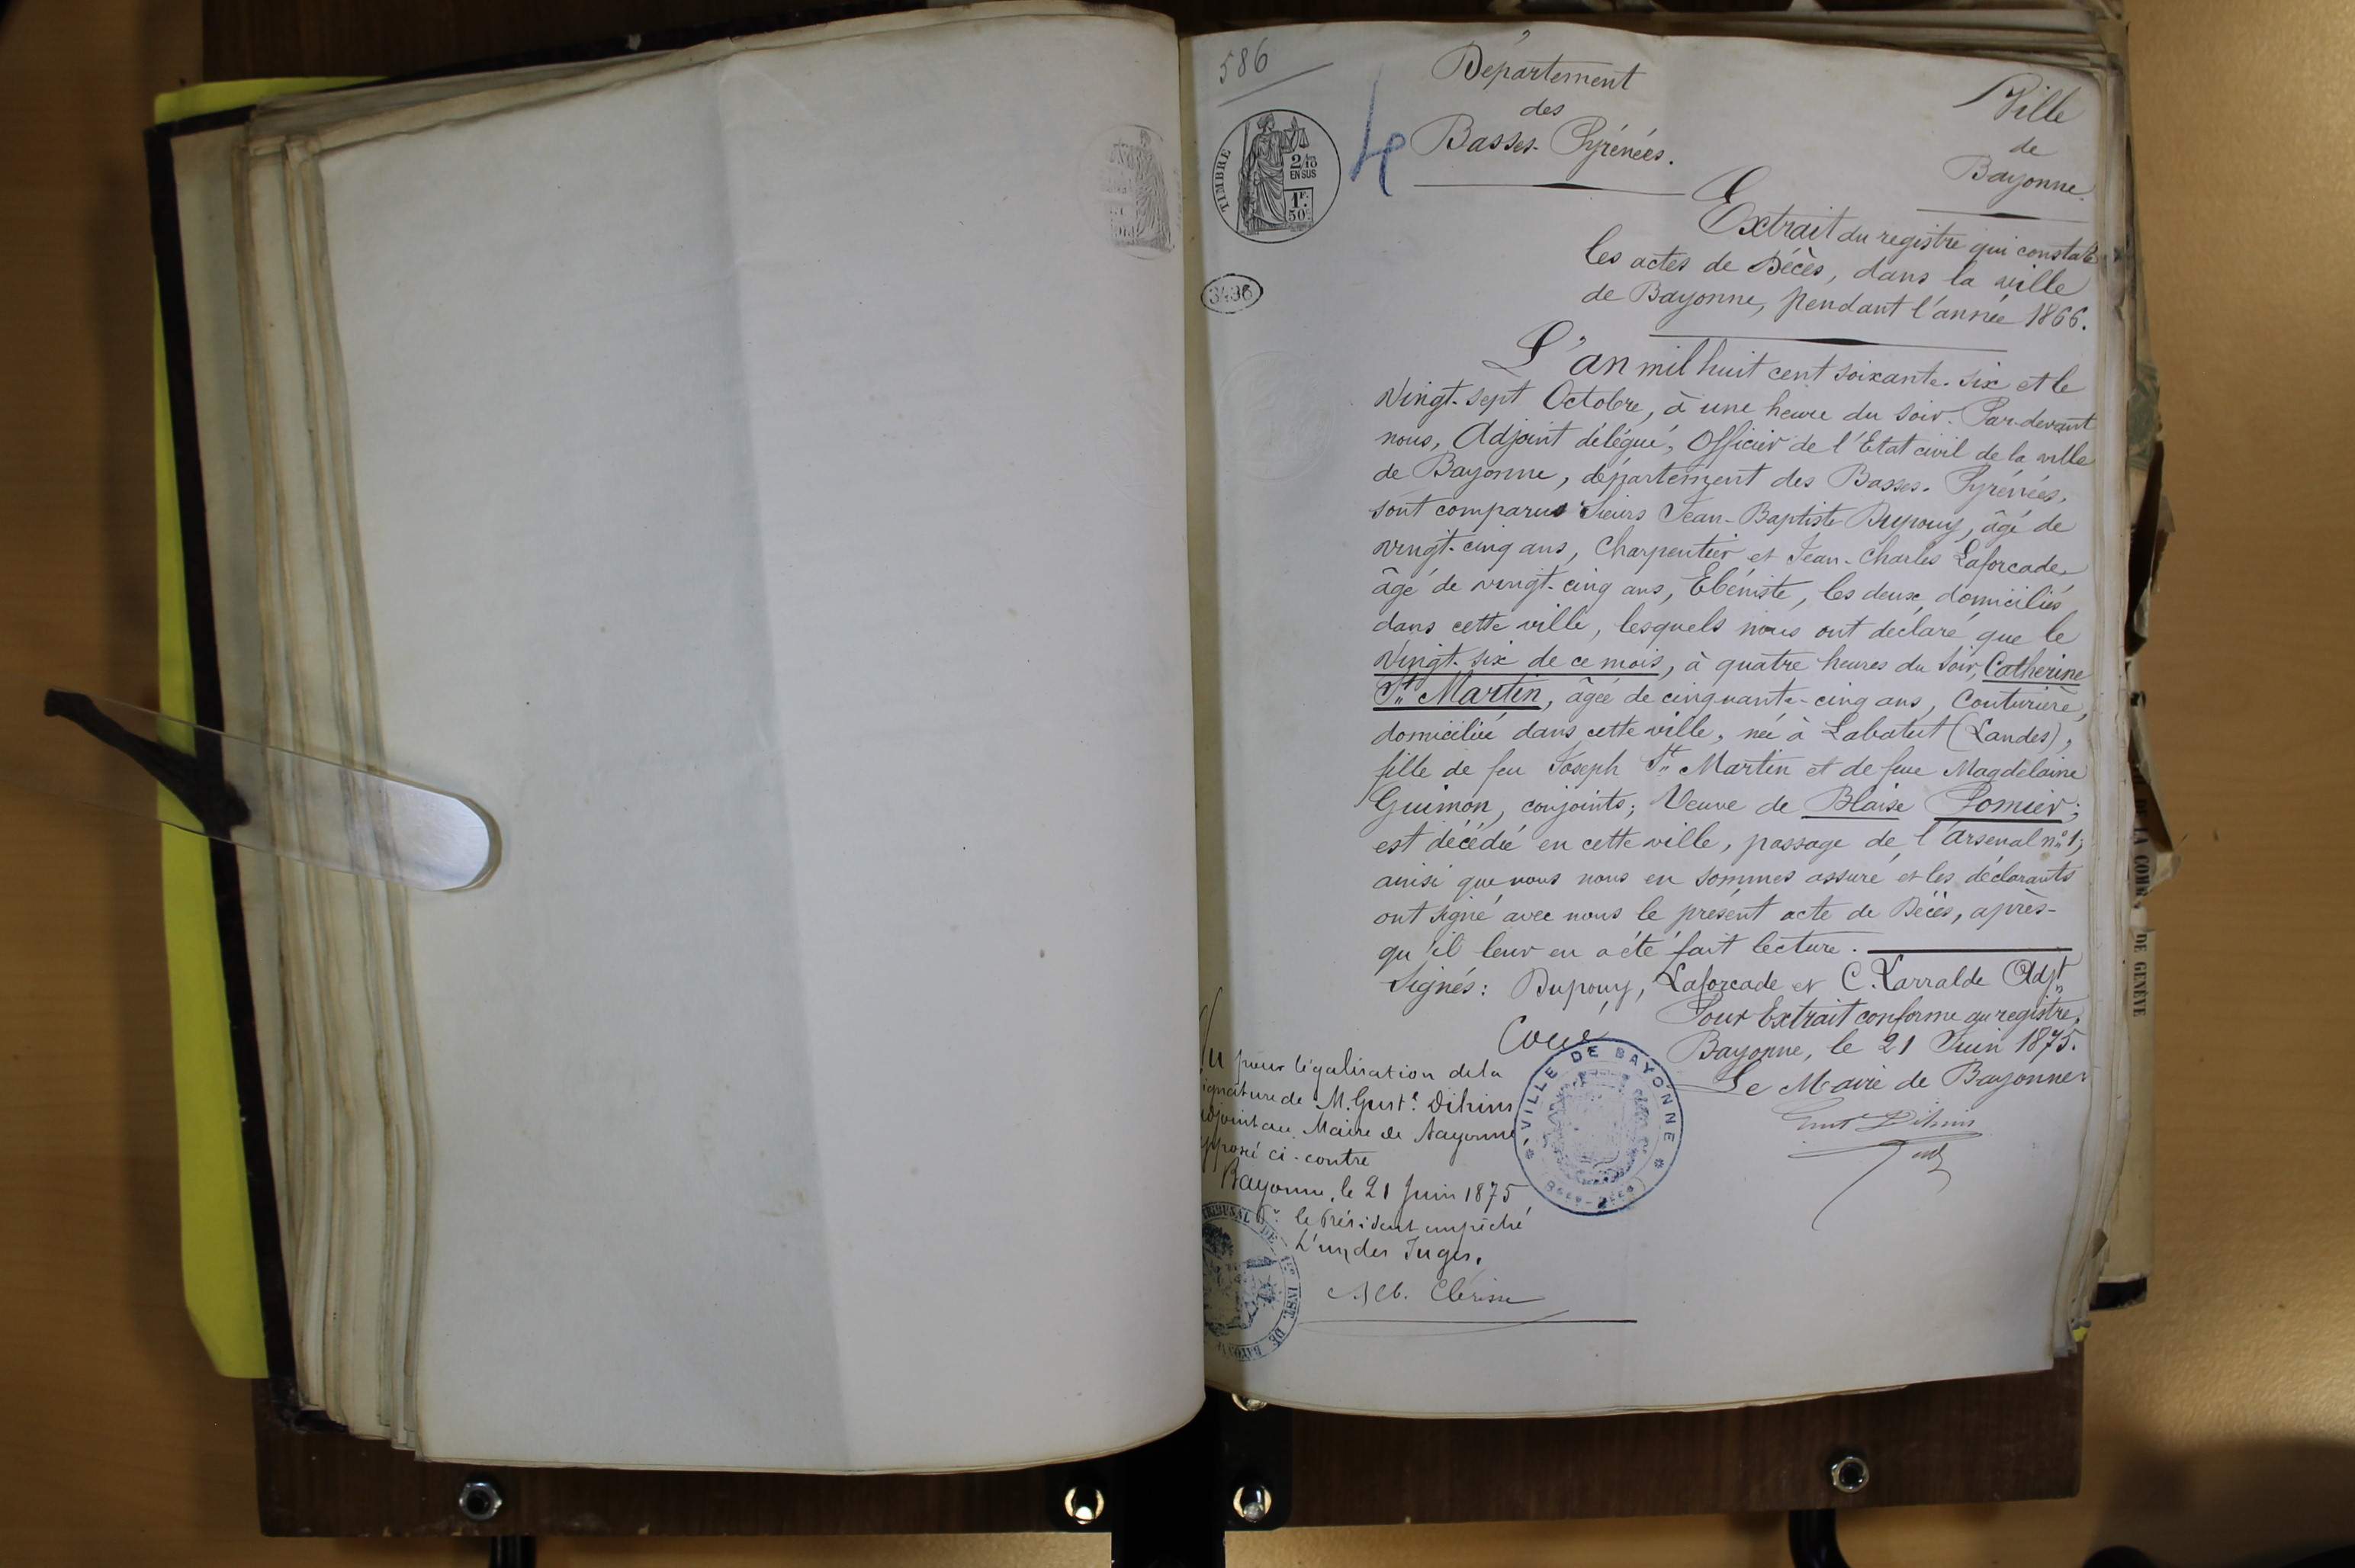 586
Département
des
Basses-Pyrénées.
Ville
de
Bayonne.
TIMBRE
2/10
EN SUS
1F.
50c
4
3436
Extrait du registre qui constate
les actes de Décès, dans la ville
de Bayonne, pendant l'année 1866.
L'an mil huit cent soixante-six et le
Vingt-sept Octobre, à une heure du soir. Par-devant
nous, Adjoint délégué, Officier de l'Etat civil de la ville
de Bayonne, département des Basses-Pyrénées,
sont comparus Sieurs Jean-Baptiste Dupouy, âgé de
vingt-cinq ans, Charpentier et Jean-Charles Laforcade,
âgé de vingt-cinq ans, Ebéniste, les deux domiciliés
dans cette ville, lesquels nous ont déclaré que le
Vingt-six de ce mois, à quatre heures du soir, Catherine
St Martin, âgée de cinquante-cinq ans, Couturière,
domiciliée dans cette ville, née à Labatut (Landes),
fille de feu Joseph St Martin et de feue Magdelaine
Guimon, conjoints; Veuve de Blaise Pomier;
est décédée en cette ville, passage de l'arsenal no 1;
ainsi que nous nous en sommes assuré et les déclarants
ont signé avec nous le présent acte de Décès, après-
qu'il leur en a été fait lecture.
Signés: Dupouy, Laforcade et C. Larralde Adjt
Pour Extrait conforme au registre,
Bayonne, le 21 Juin 1875.
Le Maire de Bayonne
VILLE DE BAYONNE
Vu pour légalisation de la
signature de M. Gust.e Dihins
adjoint au Maire de Bayonne,
apposé ci-contre
Bayonne, le 21 Juin 1875
Pr le Président empêché
L'un des Juges.
TRIBUNAL DE 1re INST. DE BAYONNE
DE LA COMR DE GENÈVE